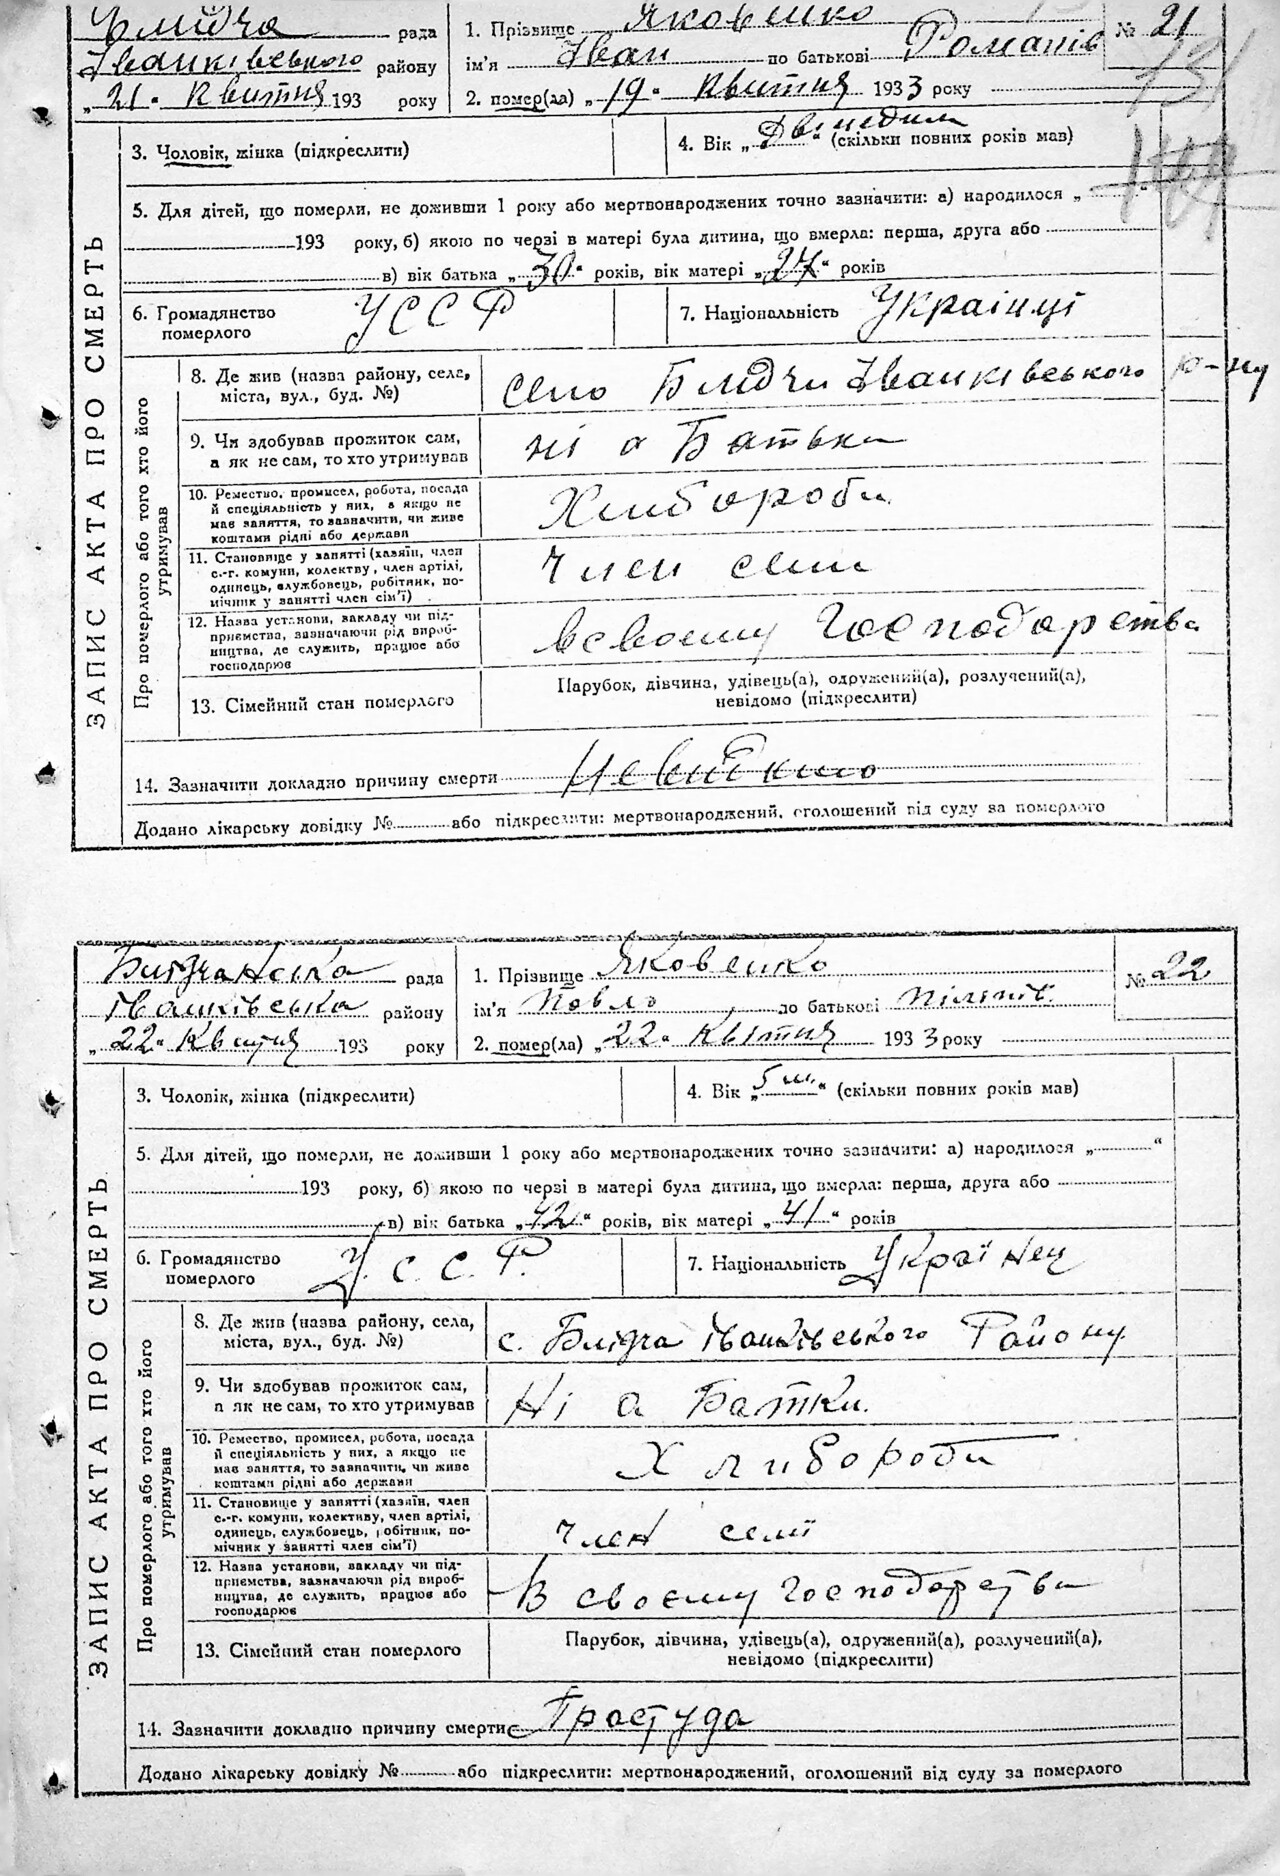 Блидча рада
Іванківського району
„21“ Квитня 193 року
1. Прізвище Яковенко
ім'я Іван по батькові Романів
2. помер(ла) „19“ квитня 1933 року
№ 21
131
ЗАПИС АКТА ПРО СМЕРТЬ
3. Чоловік, жінка (підкреслити)
4. Вік „Дві неділи“ (скільки повних років мав)
5. Для дітей, що померли, не доживши 1 року або мертвонароджених точно зазначити: а) народилося „ “
193 року, б) якою по черзі в матері була дитина, що вмерла: перша, друга або
в) вік батька „30“ років, вік матері „27“ років
6. Громадянство
померлого
УССР
7. Національність Українці
Про померлого або того хто його
утримував
8. Де жив (назва району, села,
міста, вул., буд. №)
село Блидчи Іванківського р-ну
9. Чи здобував прожиток сам,
а як не сам, то хто утримував
ні а Батьки
10. Ремество, промисел, робота, посада
й спеціяльність у них, а якщо не
мав заняття, то зазначити, чи живе
коштами рідні або держави
Хлибороби
11. Становище у занятті (хазяїн, член
с.-г. комуни, колективу, член артілі,
одинець, службовець, робітник, по-
мічник у занятті член сім'ї)
Член семи
12. Назва установи, закладу чи під-
приємства, зазначаючи рід вироб-
ництва, де служить, працює або
господарює
в своему Господарства
13. Сімейний стан померлого
Парубок, дівчина, удівець(а), одружений(а), розлучений(а),
невідомо (підкреслити)
14. Зазначити докладно причину смерти
Додано лікарську довідку № або підкреслити: мертвонароджений, оголошений від суду за померлого
Блидчанська рада
іванківська району
„22“ Квитня 193 року
1. Прізвище Яковенко
ім'я Повло по батькові Піліпів
2. помер(ла) „22“ Квітня 1933 року
№ 22
ЗАПИС АКТА ПРО СМЕРТЬ
3. Чоловік, жінка (підкреслити)
4. Вік „5 м.“ (скільки повних років мав)
5. Для дітей, що померли, не доживши 1 року або мертвонароджених точно зазначити: а) народилося „ “
193 року, б) якою по черзі в матері була дитина, що вмерла: перша, друга або
в) вік батька „42“ років, вік матері „41“ років
6. Громадянство
померлого
У.С.С.Р.
7. Національність Українец
Про померлого або того хто його
утримував
8. Де жив (назва району, села,
міста, вул., буд. №)
с. Блидча іванківського Району
9. Чи здобував прожиток сам,
а як не сам, то хто утримував
Ні а Батки.
10. Ремество, промисел, робота, посада
й спеціяльність у них, а якщо не
мав заняття, то зазначити, чи живе
коштами рідні або держави
Хлибороби
11. Становище у занятті (хазяїн, член
с.-г. комуни, колективу, член артілі,
одинець, службовець, робітник, по-
мічник у занятті член сім'ї)
член семї
12. Назва установи, закладу чи під-
приємства, зазначаючи рід вироб-
ництва, де служить, працює або
господарює
В своєму господарстви
13. Сімейний стан померлого
Парубок, дівчина, удівець(а), одружений(а), розлучений(а),
невідомо (підкреслити)
14. Зазначити докладно причину смерти Простуда
Додано лікарську довідку № або підкреслити: мертвонароджений, оголошений від суду за померлого